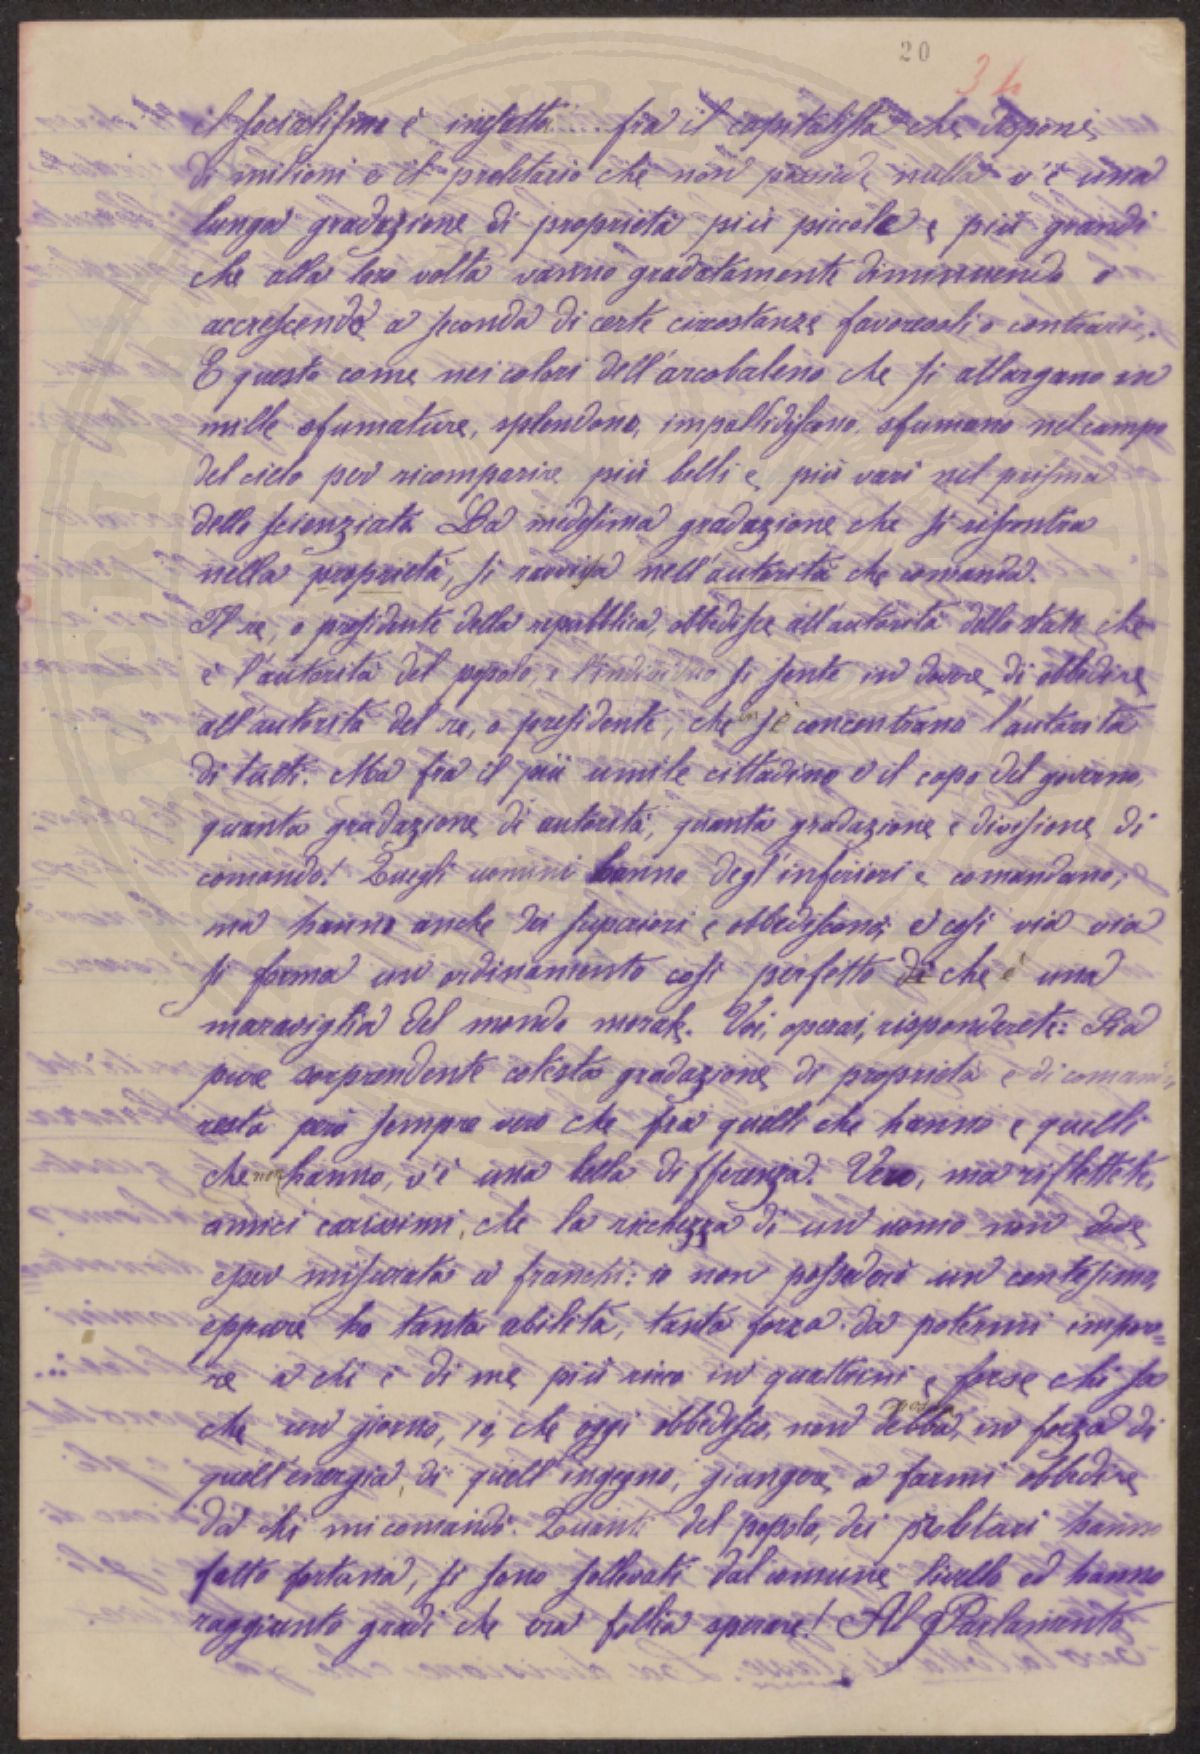 20
34
il socialismo è infatti.... fra il capitalista che dispone
di milioni e il proletario che non possiede nulla v'è una
lunga gradazione di proprietà più piccole e più grandi
che alla loro volta vanno gradatamente diminuendo o
accrescendo a seconda di certe circostanze favorevoli o contrarie.
E questo come nei colori dell'arcobaleno che si allargano in
mille sfumature, splendono, impallidiscono, sfumano nel campo
del cielo per ricomparire più belli e più vari nel prisma
dello scienziato. La medesima gradazione che si riscontra
nella proprietà, si ravvisa nell'autorità che comanda.
Il re, o presidente della repubblica, obbedisce all'autorità dello stato che
è l'autorità del popolo, e l'individuo si sente in dovere di obbedire
all'autorità del re, o presidente, che in sè concentrano l'autorità
di tutti. Ma fra il più umile cittadino e il capo del governo,
quanta gradazione di autorità, quanta gradazione e divisione di
comando! Quegli uomini hanno degl'inferiori e comandano;
ma hanno anche dei superiori e obbediscono; e così via via
si forma un ordinamento così perfetto di che è una
maraviglia del mondo morale. Voi, operai, risponderete: Sia
pure sorprendente cotesta gradazione di proprietà e di comando,
resta però sempre vero che fra quelli che hanno e quelli
che non hanno, v'è una bella differenza. Vero, ma riflettete,
amici carissimi, che la ricchezza di un uomo non deve
esser misurata a franchi: io non possederò un centesimo,
eppure ho tanta abilità, tanta forza da potermi impor=
re a chi è di me più ricco in quattrini e forse chi sa
che un giorno, io, che oggi obbedisco, non debba possa, in forza di
quell'energia, di quell'ingegno, giungere a farmi obbedire
da chi mi comandò. Quanti del popolo, dei proletari hanno
fatto fortuna, si sono sollevati dal comune livello ed hanno
raggiunto gradi che era follia sperare! Al Parlamento